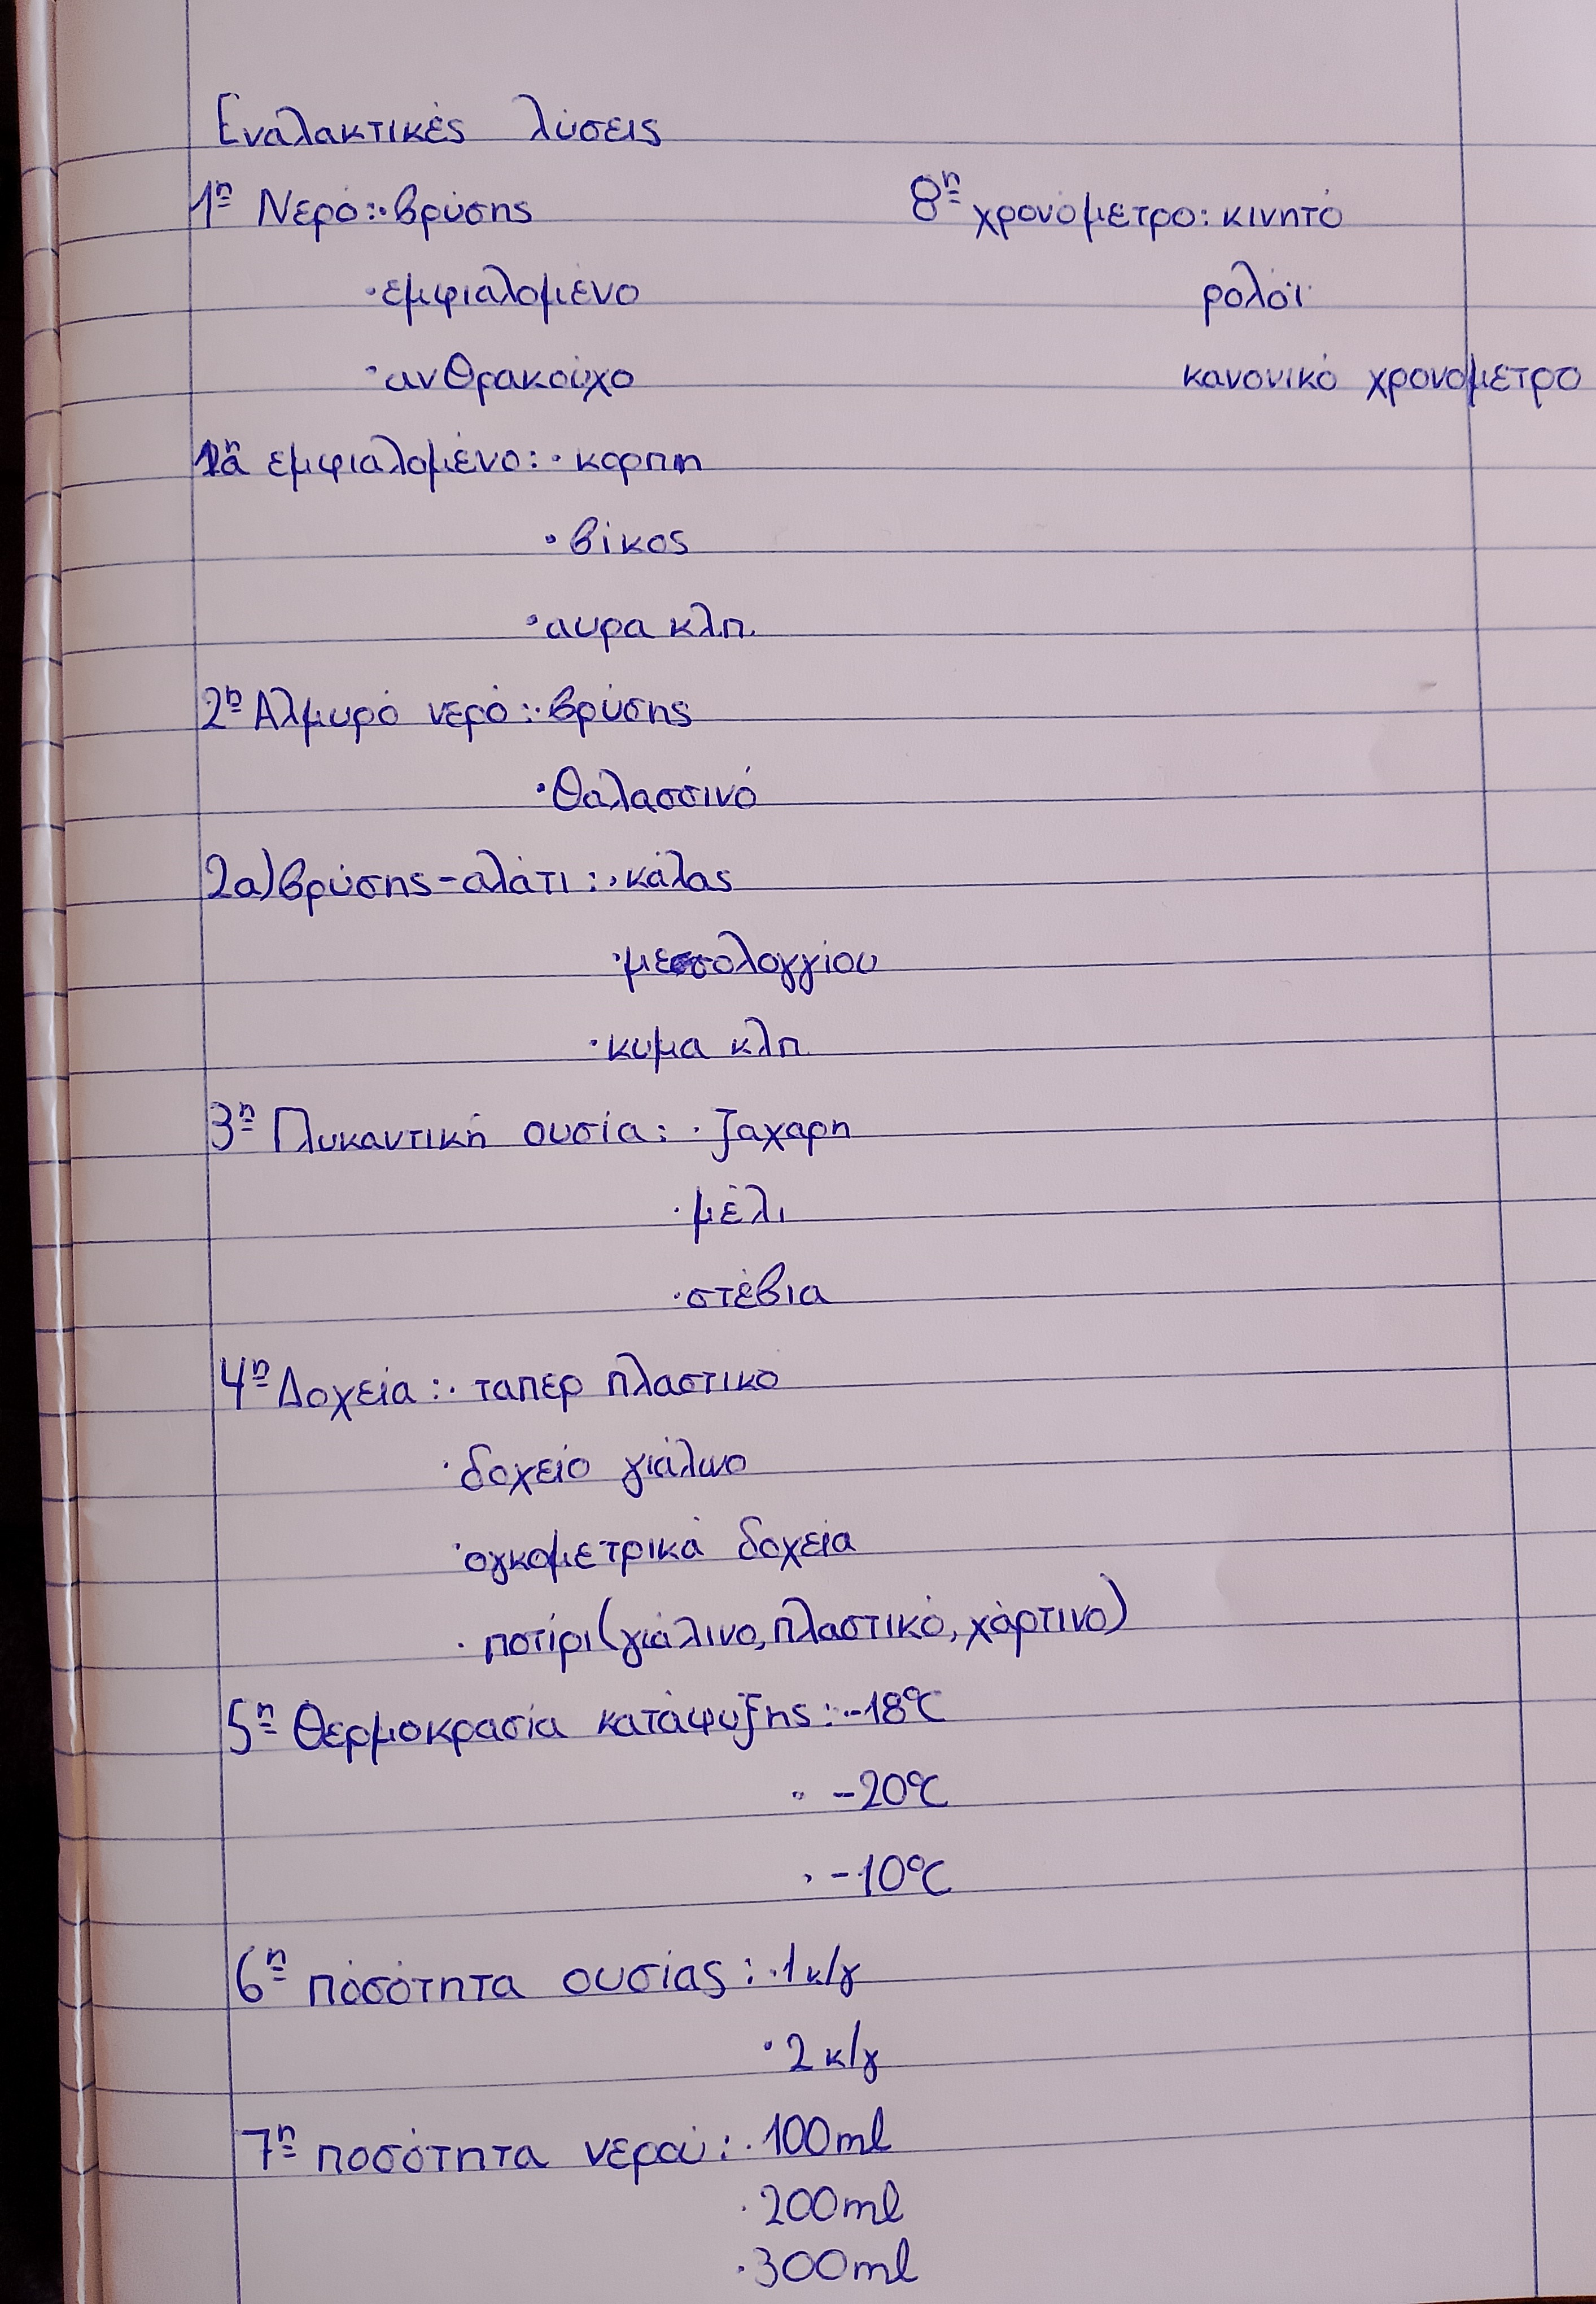 Εναλακτικές λύσεις
1η Νερό: · βρύσης
· εμφιαλομένο
· ανθρακούχο
1α εμφιαλομένο: · κορπη
· βίκος
· αυρα κλπ.
2η Αλμυρό νερό: · βρύσης
· θαλασσινό
2α) βρύσης - αλάτι: · κάλας
· μεσολογγίου
· κυμα κλπ.
3η Γλυκαντική ουσία: · ζαχαρη
· μέλι
· στέβια
4η Δοχεία: · ταπερ πλαστικο
· δοχείο γιάλινο
· ογκομετρικά δοχεία
· ποτίρι (γιάλινο, πλαστικό, χάρτινο)
5η Θερμοκρασία κατάψυξης: · -18°C
· -20°C
· -10°C
6η πόσότητα ουσίας: · 1 κ/γ
· 2 κ/γ
7η ποσότητα νερού: · 100ml
· 200ml
· 300ml
8η χρονόμετρο: κινητό
ρολόι
κανονικό χρονομετρο